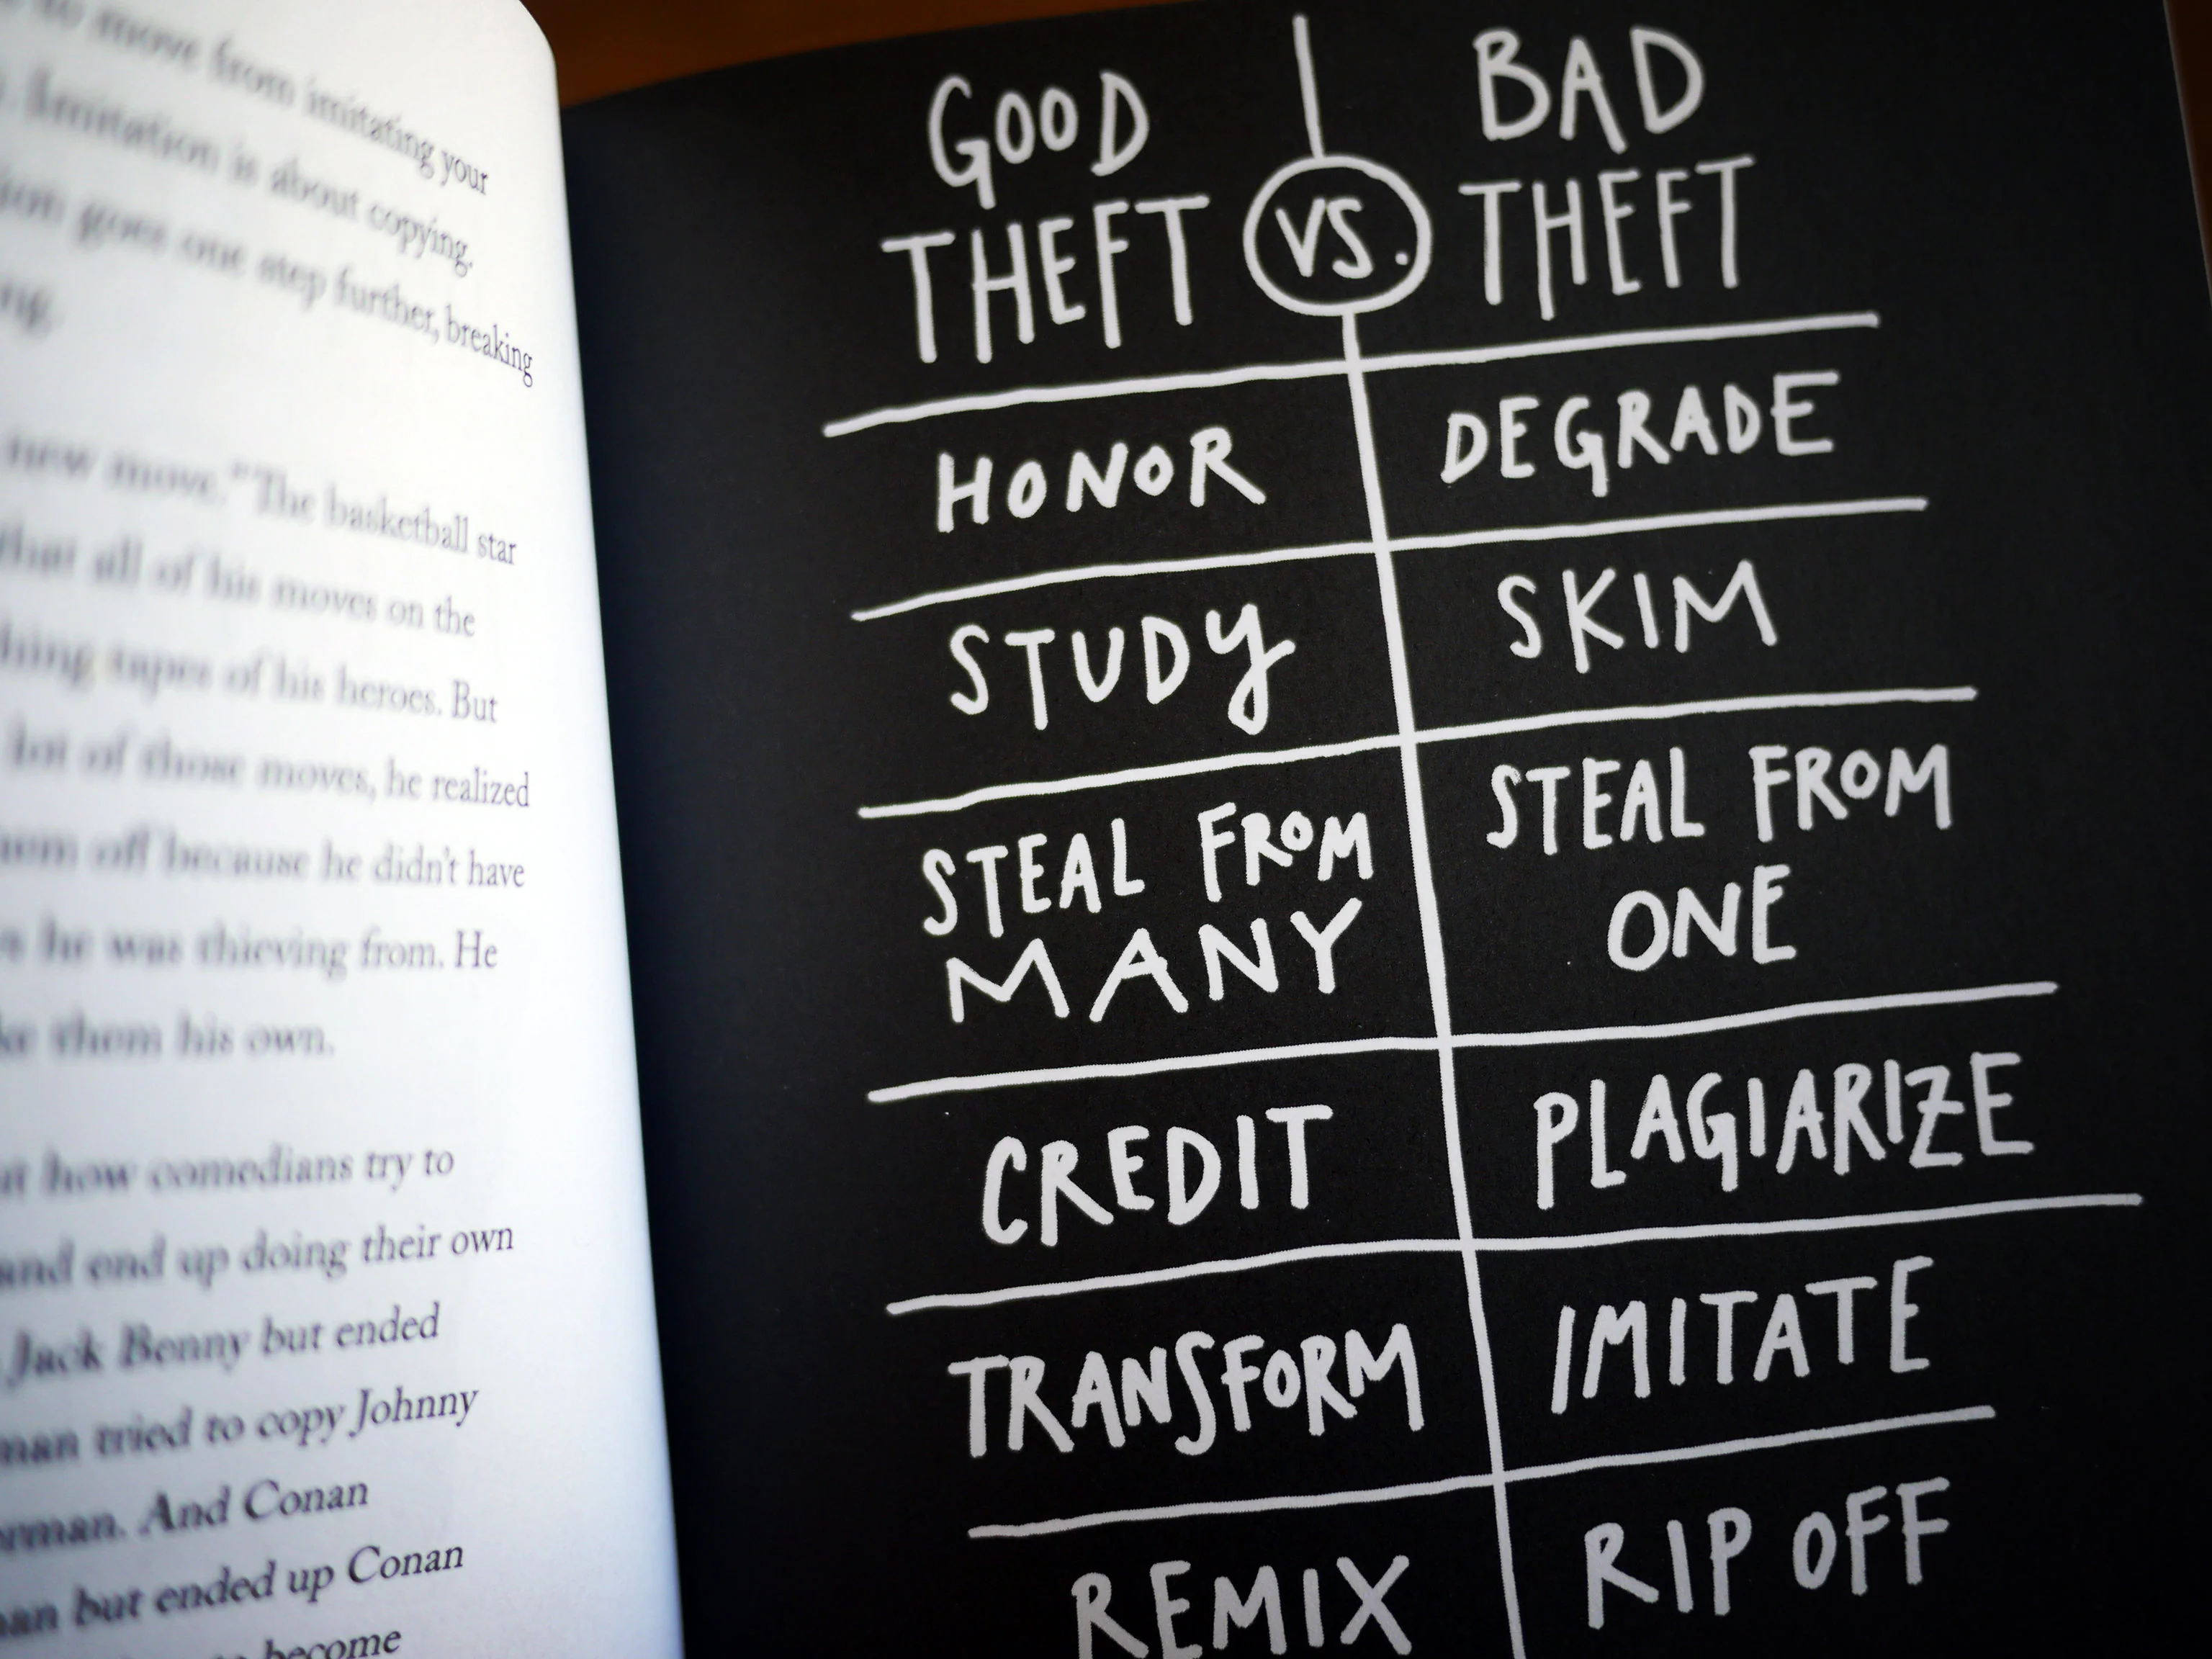 to move from imitating your
. Imitation is about copying.
goes one step further, breaking
new move." The basketball star
that all of his moves on the
tapes of his heroes. But
lot of those moves, he realized
off because he didn't have
he was thieving from. He
them his own.
how comedians try to
and end up doing their own
Jack Benny but ended
tried to copy Johnny
. And Conan
but ended up Conan
become
GOOD
THEFT
VS.
BAD
THEFT
HONOR
DEGRADE
STUDY
SKIM
STEAL FROM
MANY
STEAL FROM
ONE
CREDIT
PLAGIARIZE
TRANSFORM
IMITATE
REMIX
RIP OFF